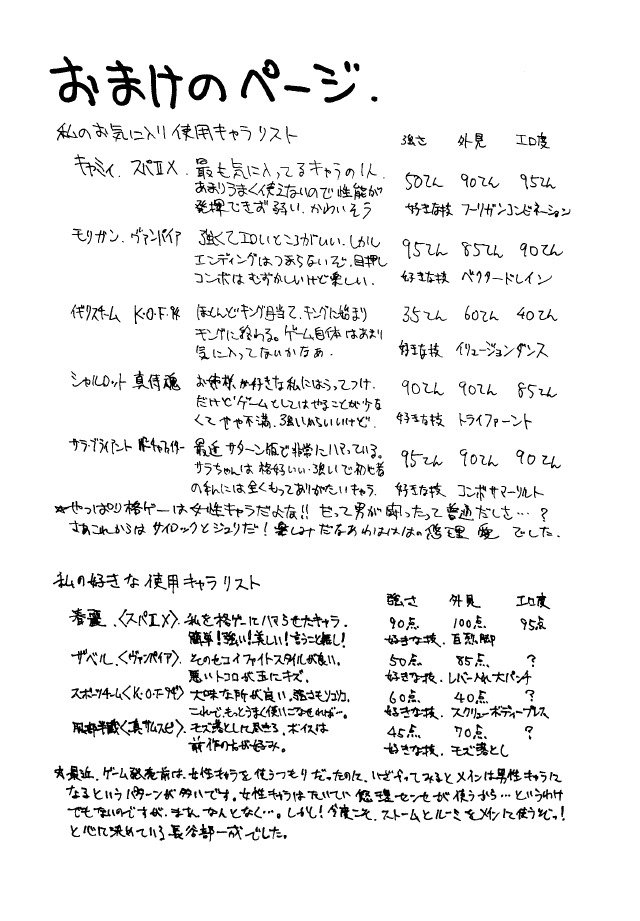 おまけのページ.
私のお気に入り使用キャラリスト 強さ 外見 エロ度
キャミィ. スパⅡX. 最も気に入ってるキャラの1人
あまりうまく使えないので性能が
発揮できず弱い. かわいそう
50てん 90てん 95てん
好きな技 フーリガンコンビネーション
モリガン. ヴァンパイア 強くてエロいところがいい. しかし
エンディングはつまらないぞ. 目押し
コンボはむずかしいけど楽しい.
95てん 85てん 90てん
好きな技 ベクタードレイン
イギリスチーム K・O・F '94 ほとんどキング目当て. キングに始まり
キングに終わる。ゲーム自体はあまり
気に入ってないかなあ.
35てん 60てん 40てん
好きな技 イリュージョンダンス
シャルロット 真侍魂 お姉様が好きな私にはうってつけ.
だけどゲームとしてはやることが少な
くてやや不満. 強いからいいけど.
90てん 90てん 85てん
好きな技 トライファーント
サラ・ブライアント バーチャファイター 最近サターン版で非常にハマっている。
サラちゃんは格好いい・強いで初心者
の私には全くもってありがたいキャラ.
95てん 90てん 90てん
好きな技 コンボサマーソルト
☆やっぱり格ゲーは女性キャラだよな!! だって男が闘ったって普通だしさ…?
さあこれからはサイロックとジュリだ! 楽しみだなあわはははの悠理 愛 でした.
私の好きな使用キャラリスト 強さ 外見 エロ度
春麗.〈スパⅡX〉. 私を格ゲーにハマらせたキャラ.
簡単!強い!美しい!言うこと無し!
90点 100点 95点
好きな技. 百烈脚
ザベル.〈ヴァンパイア〉. そのセコイファイトスタイルが良い。
悪いトコロが玉にキズ.
50点 85点. ?
好きな技. レバー入れ大パンチ
スポーツチーム〈K・O・F'94〉 大味な所が良い. 強さもソコソコ.
これで、もっとうまく使いこなせれば….
60点 40点 ?
好きな技. スクリューボディープレス
服部半蔵〈真サムスピ〉. モズ落としに尽きる. ボイスは
前作の方が好み。
45点 70点 ?
好きな技. モズ落とし
☆最近、ゲーム発売前は、女性キャラを使うつもりだったのに、いざやってみるとメインは男性キャラに
なるというパターンが多いです。女性キャラはたいてい悠理センセが使うから…というわけ
でもないのですが、まぁ、なんとなく…。しかし!今度こそ、ストームとルーミをメインに使うぞっ!
と心に決めている長谷部一成でした。